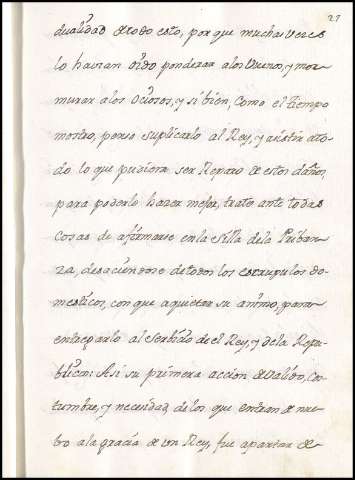 27
dualidad de todo esto, por que muchas veces
lo havian oido ponderar a los buenos, y mor-
murar a los ociosos, y si bien, Como el tiempo
mostro, penso suplicarlo al Rey, y asistir a to-
do lo que pudiera ser Reparo de estos daños,
para poderlo hazer mejor, trato ante todas
Cosas de afirmarse en la Silla de la Priban-
za, desaciendose de todos los escrupulos do-
mesticos, con que aquietar su animo, para
entregarlo al Serbicio de el Rey, y de la Repu-
blica: Asi su primera accion de Valido, Cos-
tumbre, y necesidad de los que entran de nue-
bo a la gracia de un Rey, fue apartar de